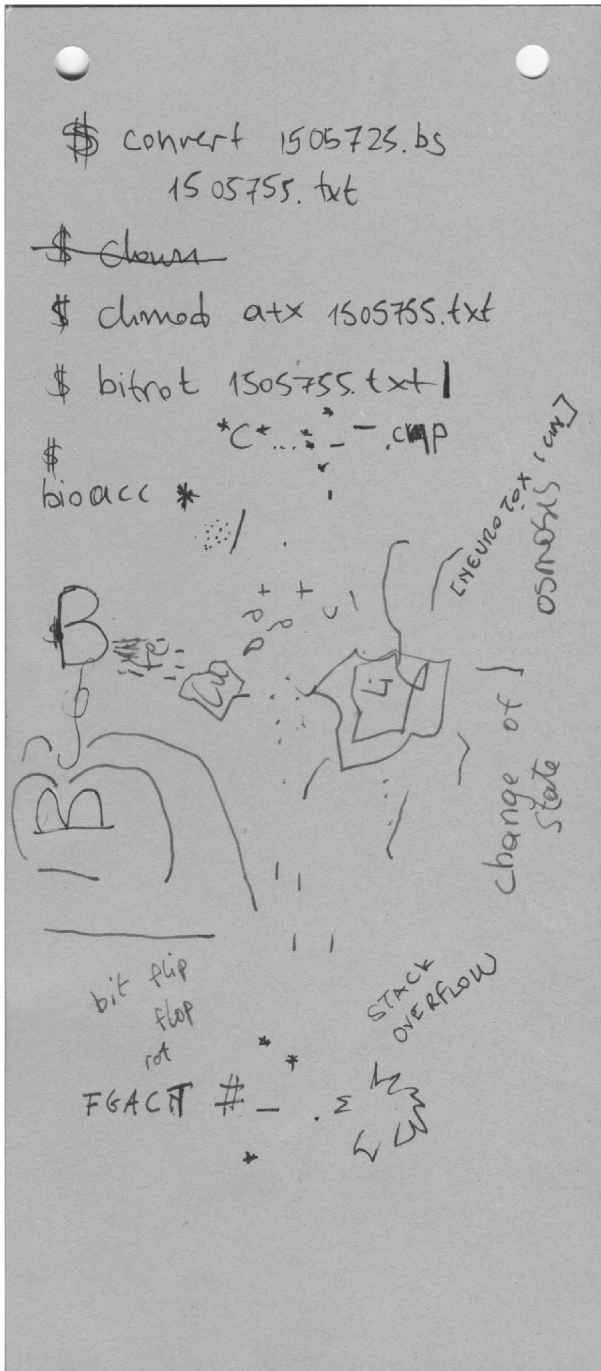 $ convert 1505725.bs
1505755.txt
$ chown
$ chmod a+x 1505755.txt
$ bitrot 1505755.txt |
*C*...:_-.cmp
$
bioacc *
[NEUROTOXICIN]
osmosis
B
Cu
Li
change of
state
B
bit flip
flop
rot
STACK
OVERFLOW
FGACT #_ . Σ